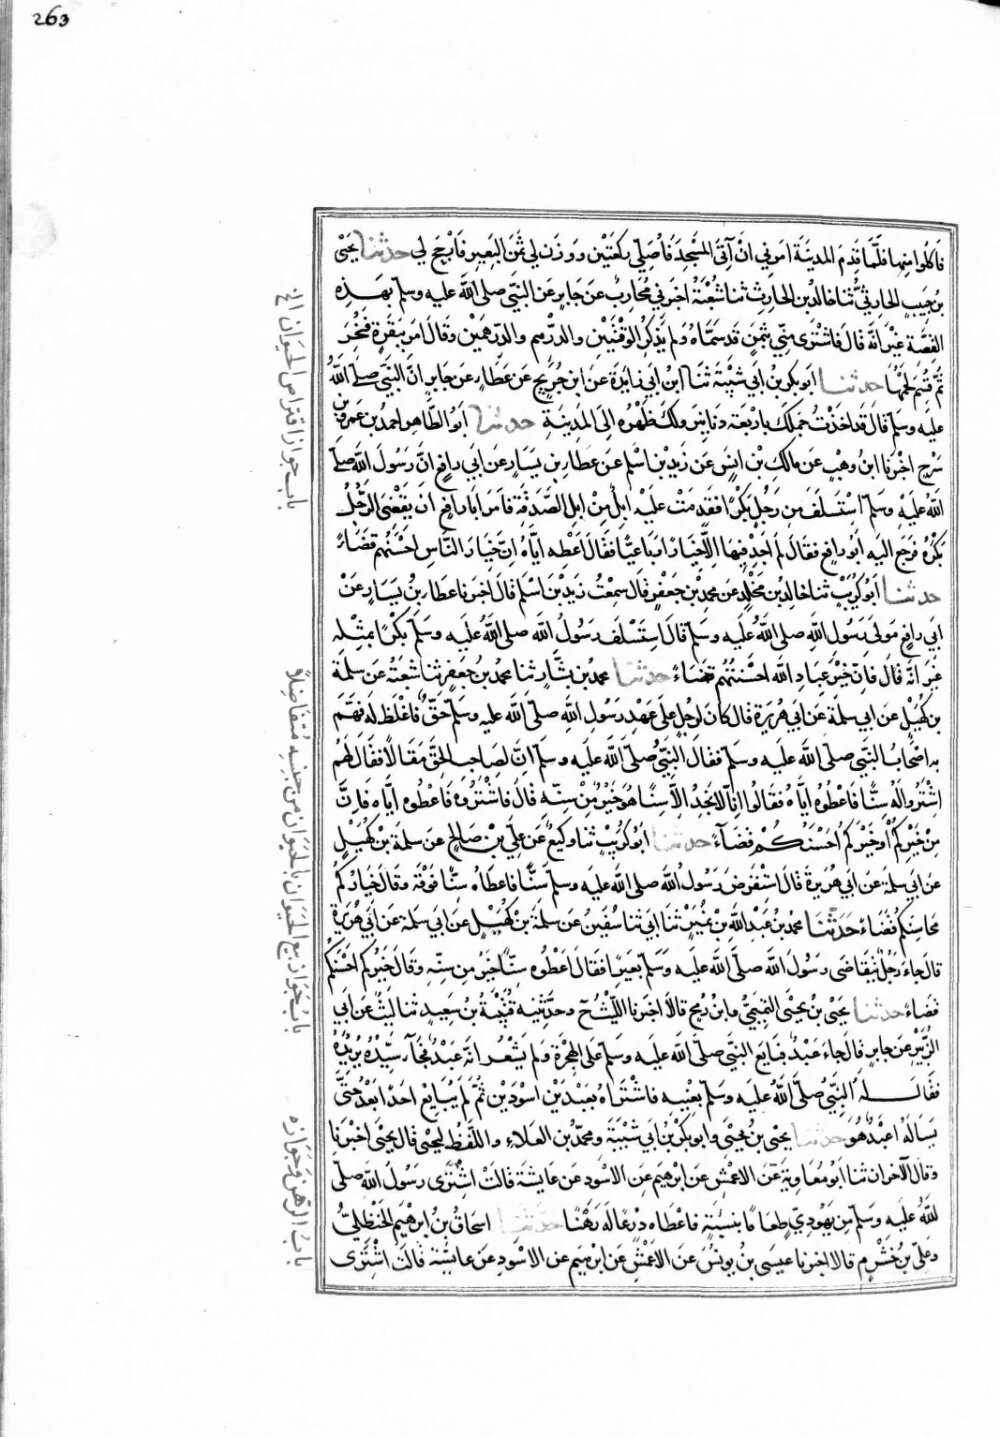 263
فاكلوا منها فلما قدم المدينة امرني ان آتي المسجد فاصلي ركعتين ووزن لي ثمن البعير فارجح لي حدثنا يحيى
بن حبيب الحارثي ثنا خالد بن الحارث ثنا شعبة اخبرني محارب عن جابر عن النبي صلى الله عليه وسلم بهذه
القصة غير انه قال فاشترى مني بثمن قد سماه ولم يذكر الوقيتين والدرهم والدرهمين وقال امر ببقرة فنحرت
ثم قسم لحمها حدثنا ابو بكر بن ابي شيبة ثنا ابن ابي زايدة عن ابن جريج عن عطاء عن جابر ان النبي صلى الله
عليه وسلم قال قد اخذت جملك باربعة دنانير ولك ظهره الى المدينة حدثنا ابو الطاهر احمد بن عمرو بن
سرح اخبرنا ابن وهب عن مالك بن انس عن زيد بن اسلم عن عطاء بن يسار عن ابي رافع ان رسول الله صلى
الله عليه وسلم استسلف من رجل بكرا فقدمت عليه ابل من ابل الصدقة فامر ابا رافع ان يقضي الرجل
بكره فرجع اليه ابو رافع فقال لم اجد فيها الا خيارا رباعيا فقال اعطه اياه ان خيار الناس احسنهم قضاء
حدثنا ابو كريب ثنا خالد بن مخلد عن محمد بن جعفر قال سمعت زيد بن اسلم قال اخبرنا عطاء بن يسار عن
ابي رافع مولى رسول الله صلى الله عليه وسلم قال استسلف رسول الله صلى الله عليه وسلم بكرا بمثله
غير انه قال فان خير عباد الله احسنهم قضاء حدثنا محمد بن بشار ثنا محمد بن جعفر ثنا شعبة عن سلمة
بن كهيل عن ابي سلمة عن ابي هريرة قال كان لرجل على عهد رسول الله صلى الله عليه وسلم حق فاغلظ له فهم
به اصحاب النبي صلى الله عليه وسلم فقال النبي صلى الله عليه وسلم ان لصاحب الحق مقالا فقال لهم
اشتروا له سنا فاعطوه اياه فقالوا انا لا نجد الا سنا هو خير من سنه قال فاشتروه فاعطوه اياه فان
من خيركم او خيركم احسنكم قضاء حدثنا ابو كريب ثنا وكيع عن علي بن صالح عن سلمة بن كهيل
عن ابي سلمة عن ابي هريرة قال استقرض رسول الله صلى الله عليه وسلم سنا فاعطاه سنا فوقه وقال خياركم
محاسنكم قضاء حدثنا محمد بن عبد الله بن نمير ثنا ابي ثنا سفين عن سلمة بن كهيل عن ابي سلمة عن ابي هريرة
قال جاء رجل يتقاضى رسول الله صلى الله عليه وسلم بعيرا فقال اعطوه سنا خير من سنه وقال خيركم احسنكم
قضاء حدثنا يحيى بن يحيى التميمي وابن رمح قالا اخبرنا الليث ح وحدثنيه قتيبة بن سعيد ثنا ليث عن ابي
الزبير عن جابر قال جاء عبد فبايع النبي صلى الله عليه وسلم على الهجرة ولم يشعر انه عبد فجاء سيده يريده
فقال له النبي صلى الله عليه وسلم بعنيه فاشتراه بعبدين اسودين ثم لم يبايع احدا بعد حتى
يساله اعبد هو حدثنا يحيى بن يحيى وابو بكر بن ابي شيبة ومحمد بن العلاء واللفظ ليحيى قال يحيى اخبرنا
وقال الآخران ثنا ابو معاوية عن الاعمش عن ابرهيم عن الاسود عن عايشة قالت اشترى رسول الله صلى
الله عليه وسلم من يهودي طعاما بنسيئة فاعطاه درعا له رهنا حدثنا اسحاق بن ابرهيم الحنظلي
وعلي بن خشرم قالا اخبرنا عيسى بن يونس عن الاعمش عن ابرهيم عن الاسود عن عايشة قالت اشترى
باب جواز اقتراض الحيوان الخ
باب جواز بيع الحيوان بالحيوان من جنسه متفاضلا
باب الرهن وجوازه